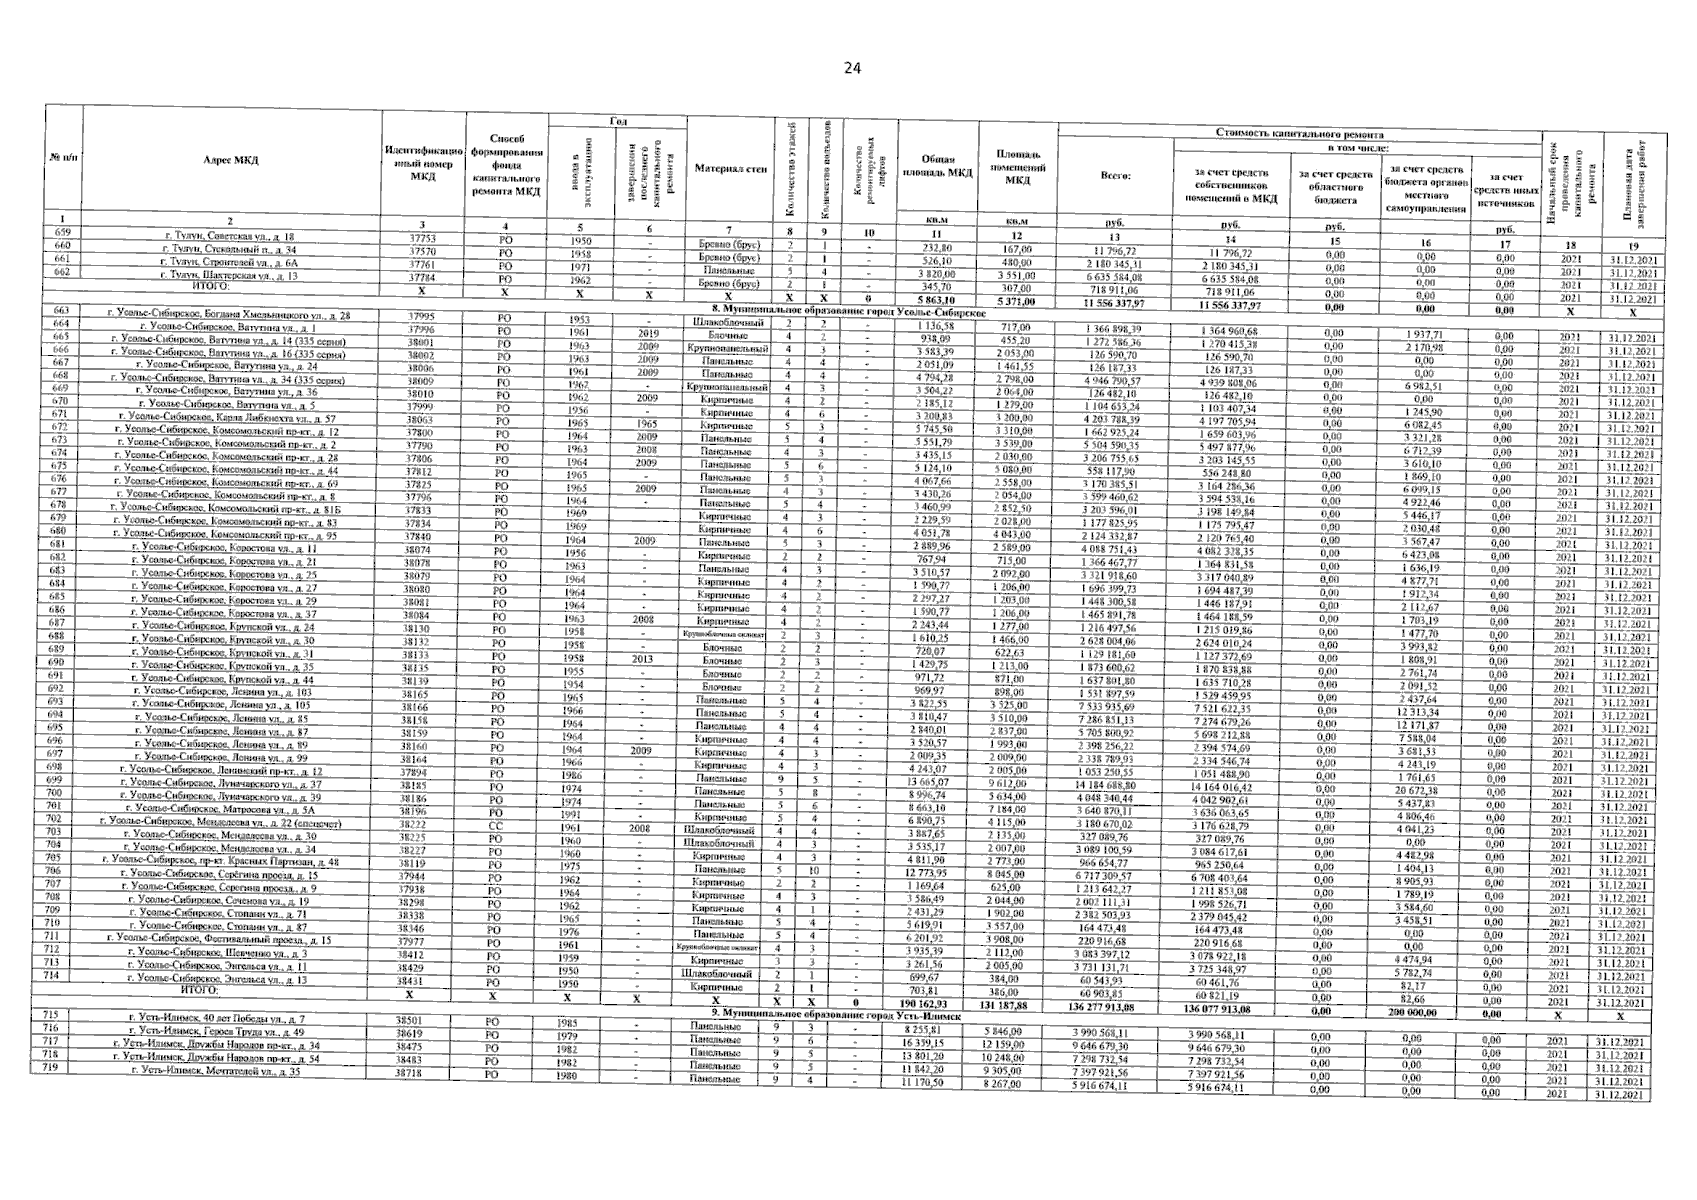 24
№ п/п | Адрес МКД | Идентификационный номер МКД | Способ формирования фонда капитального ремонта МКД | Год | ввода в эксплуатацию | завершения последнего капитального ремонта | Материал стен | Количество этажей | Количество подъездов | Количество ремонтируемых лифтов | Общая площадь МКД | Площадь помещений МКД | Стоимость капитального ремонта | Всего: | в том числе: | за счет средств собственников помещений в МКД | за счет средств областного бюджета | за счет средств бюджета органов местного самоуправления | за счет средств иных источников | Начальный срок проведения капитального ремонта | Плановая дата завершения работ
кв.м | кв.м | руб. | руб. | руб. | руб.
1 2 3 4 5 6 7 8 9 10 11 12 13 14 15 16 17 18 19
659 г. Тулун, Советская ул., д. 18 37753 РО 1950 - Бревно (брус) 2 1 - 232,80 167,00 11 796,72 11 796,72 0,00 0,00 0,00 2021 31.12.2021
660 г. Тулун, Стекольный п., д. 34 37570 РО 1958 - Бревно (брус) 2 1 - 526,10 480,00 2 180 345,31 2 180 345,31 0,00 0,00 0,00 2021 31.12.2021
661 г. Тулун, Строителей ул., д. 6А 37761 РО 1971 - Панельные 5 4 - 3 820,00 3 551,00 6 635 584,08 6 635 584,08 0,00 0,00 0,00 2021 31.12.2021
662 г. Тулун, Шахтерская ул., д. 13 37784 РО 1962 - Бревно (брус) 2 1 - 345,70 307,00 718 911,06 718 911,06 0,00 0,00 0,00 2021 31.12.2021
ИТОГО: Х Х Х Х Х Х Х 0 5 863,10 5 371,00 11 556 337,97 11 556 337,97 0,00 0,00 0,00 Х Х
8. Муниципальное образование город Усолье-Сибирское
663 г. Усолье-Сибирское, Богдана Хмельницкого ул., д. 28 37995 РО 1953 - Шлакоблочный 2 2 - 1 136,58 717,00 1 366 898,39 1 364 960,68 0,00 1 937,71 0,00 2021 31.12.2021
664 г. Усолье-Сибирское, Ватутина ул., д. 1 37996 РО 1961 2019 Блочные 4 2 - 938,09 455,20 1 272 586,36 1 270 415,38 0,00 2 170,98 0,00 2021 31.12.2021
665 г. Усолье-Сибирское, Ватутина ул., д. 14 (335 серия) 38001 РО 1963 2009 Крупнопанельный 4 3 - 3 583,39 2 053,00 126 590,70 126 590,70 0,00 0,00 0,00 2021 31.12.2021
666 г. Усолье-Сибирское, Ватутина ул., д. 16 (335 серия) 38002 РО 1963 2009 Панельные 4 4 - 2 051,09 1 461,55 126 187,33 126 187,33 0,00 0,00 0,00 2021 31.12.2021
667 г. Усолье-Сибирское, Ватутина ул., д. 24 38006 РО 1961 2009 Панельные 4 4 - 4 794,28 2 798,00 4 946 790,57 4 939 808,06 0,00 6 982,51 0,00 2021 31.12.2021
668 г. Усолье-Сибирское, Ватутина ул., д. 34 (335 серия) 38009 РО 1967 - Крупнопанельный 4 3 - 3 504,22 2 064,00 126 482,10 126 482,10 0,00 0,00 0,00 2021 31.12.2021
669 г. Усолье-Сибирское, Ватутина ул., д. 36 38010 РО 1962 2009 Кирпичные 4 2 - 2 185,12 1 279,00 1 104 653,24 1 103 407,34 0,00 1 245,90 0,00 2021 31.12.2021
670 г. Усолье-Сибирское, Ватутина ул., д. 5 37999 РО 1956 - Кирпичные 4 6 - 3 200,83 3 200,00 4 203 788,39 4 197 705,94 0,00 6 082,45 0,00 2021 31.12.2021
671 г. Усолье-Сибирское, Карла Либкнехта ул., д. 57 38063 РО 1965 1965 Кирпичные 5 3 - 5 745,50 3 310,00 1 662 925,24 1 659 603,96 0,00 3 321,28 0,00 2021 31.12.2021
672 г. Усолье-Сибирское, Комсомольский пр-кт., д. 12 37800 РО 1964 2009 Панельные 5 4 - 5 551,79 3 539,00 5 504 590,35 5 497 877,96 0,00 6 712,39 0,00 2021 31.12.2021
673 г. Усолье-Сибирское, Комсомольский пр-кт., д. 2 37790 РО 1963 2008 Панельные 4 3 - 3 435,15 2 030,00 3 206 755,65 3 203 145,55 0,00 3 610,10 0,00 2021 31.12.2021
674 г. Усолье-Сибирское, Комсомольский пр-кт., д. 28 37806 РО 1964 2009 Панельные 5 6 - 5 124,10 5 080,00 558 117,90 556 248,80 0,00 1 869,10 0,00 2021 31.12.2021
675 г. Усолье-Сибирское, Комсомольский пр-кт., д. 44 37812 РО 1965 - Панельные 5 3 - 4 067,66 2 558,00 3 170 385,51 3 164 286,36 0,00 6 099,15 0,00 2021 31.12.2021
676 г. Усолье-Сибирское, Комсомольский пр-кт., д. 69 37825 РО 1965 2009 Панельные 4 3 - 3 430,26 2 054,00 3 599 460,62 3 594 538,16 0,00 4 922,46 0,00 2021 31.12.2021
677 г. Усолье-Сибирское, Комсомольский пр-кт., д. 8 37796 РО 1964 - Панельные 5 4 - 3 460,99 2 852,50 3 203 596,01 3 198 149,84 0,00 5 446,17 0,00 2021 31.12.2021
678 г. Усолье-Сибирское, Комсомольский пр-кт., д. 81Б 37833 РО 1969 - Кирпичные 4 3 - 2 229,59 2 028,00 1 177 825,95 1 175 795,47 0,00 2 030,48 0,00 2021 31.12.2021
679 г. Усолье-Сибирское, Комсомольский пр-кт., д. 83 37834 РО 1969 - Кирпичные 4 6 - 4 051,78 4 043,00 2 124 332,87 2 120 765,40 0,00 3 567,47 0,00 2021 31.12.2021
680 г. Усолье-Сибирское, Комсомольский пр-кт., д. 95 37840 РО 1964 2009 Панельные 5 3 - 2 889,96 2 589,00 4 088 751,43 4 082 328,35 0,00 6 423,08 0,00 2021 31.12.2021
681 г. Усолье-Сибирское, Коростова ул., д. 11 38074 РО 1956 - Кирпичные 2 2 - 767,94 715,00 1 366 467,77 1 364 831,58 0,00 1 636,19 0,00 2021 31.12.2021
682 г. Усолье-Сибирское, Коростова ул., д. 21 38078 РО 1963 - Панельные 4 3 - 3 510,57 2 092,00 3 321 918,60 3 317 040,89 0,00 4 877,71 0,00 2021 31.12.2021
683 г. Усолье-Сибирское, Коростова ул., д. 25 38079 РО 1964 - Кирпичные 4 2 - 1 590,77 1 206,00 1 696 399,73 1 694 487,39 0,00 1 912,34 0,00 2021 31.12.2021
684 г. Усолье-Сибирское, Коростова ул., д. 27 38080 РО 1964 - Кирпичные 4 2 - 2 297,27 1 203,00 1 448 300,58 1 446 187,91 0,00 2 112,67 0,00 2021 31.12.2021
685 г. Усолье-Сибирское, Коростова ул., д. 29 38081 РО 1964 - Кирпичные 4 2 - 1 590,77 1 206,00 1 465 891,78 1 464 188,59 0,00 1 703,19 0,00 2021 31.12.2021
686 г. Усолье-Сибирское, Коростова ул., д. 37 38084 РО 1963 2008 Кирпичные 4 2 - 2 243,44 1 277,00 1 216 497,56 1 215 019,86 0,00 1 477,70 0,00 2021 31.12.2021
687 г. Усолье-Сибирское, Крупской ул., д. 24 38130 РО 1958 - 2 3 - 1 610,25 1 466,00 2 628 004,06 2 624 010,24 0,00 3 993,82 0,00 2021 31.12.2021
688 г. Усолье-Сибирское, Крупской ул., д. 30 38132 РО 1958 - Блочные 2 2 - 720,07 622,63 1 129 181,60 1 127 372,69 0,00 1 808,91 0,00 2021 31.12.2021
689 г. Усолье-Сибирское, Крупской ул., д. 31 38133 РО 1958 2013 Блочные 2 3 - 1 429,75 1 213,00 1 873 600,62 1 870 838,88 0,00 2 761,74 0,00 2021 31.12.2021
690 г. Усолье-Сибирское, Крупской ул., д. 35 38135 РО 1955 - Блочные 2 2 - 971,72 871,00 1 637 801,80 1 635 710,28 0,00 2 091,52 0,00 2021 31.12.2021
691 г. Усолье-Сибирское, Крупской ул., д. 44 38139 РО 1954 - Блочные 2 2 - 969,97 898,00 1 531 897,59 1 529 459,95 0,00 2 437,64 0,00 2021 31.12.2021
692 г. Усолье-Сибирское, Ленина ул., д. 103 38165 РО 1965 - Панельные 5 4 - 3 822,55 3 525,00 7 533 935,69 7 521 622,35 0,00 12 313,34 0,00 2021 31.12.2021
693 г. Усолье-Сибирское, Ленина ул., д. 105 38166 РО 1966 - Панельные 5 4 - 3 810,47 3 510,00 7 286 851,13 7 274 679,26 0,00 12 171,87 0,00 2021 31.12.2021
694 г. Усолье-Сибирское, Ленина ул., д. 85 38158 РО 1964 - Панельные 4 4 - 2 840,01 2 837,00 5 705 800,92 5 698 212,88 0,00 7 588,04 0,00 2021 31.12.2021
695 г. Усолье-Сибирское, Ленина ул., д. 87 38159 РО 1964 - Кирпичные 4 4 - 3 520,57 1 993,00 2 398 256,22 2 394 574,69 0,00 3 681,53 0,00 2021 31.12.2021
696 г. Усолье-Сибирское, Ленина ул., д. 89 38160 РО 1964 2009 Кирпичные 4 3 - 2 009,35 2 009,00 2 338 789,93 2 334 546,74 0,00 4 243,19 0,00 2021 31.12.2021
697 г. Усолье-Сибирское, Ленина ул., д. 99 38164 РО 1966 - Кирпичные 4 3 - 4 243,07 2 005,00 1 053 250,55 1 051 488,90 0,00 1 761,65 0,00 2021 31.12.2021
698 г. Усолье-Сибирское, Ленинский пр-кт., д. 12 37894 РО 1986 - Панельные 9 5 - 13 665,07 9 612,00 14 184 688,80 14 164 016,42 0,00 20 672,38 0,00 2021 31.12.2021
699 г. Усолье-Сибирское, Луначарского ул., д. 37 38185 РО 1974 - Панельные 5 8 - 8 996,74 5 634,00 4 048 340,44 4 042 902,61 0,00 5 437,83 0,00 2021 31.12.2021
700 г. Усолье-Сибирское, Луначарского ул., д. 39 38186 РО 1974 - Панельные 5 6 - 8 663,10 7 184,00 3 640 870,11 3 636 063,65 0,00 4 806,46 0,00 2021 31.12.2021
701 г. Усолье-Сибирское, Матросова ул., д. 5А 38196 РО 1991 - Панельные 5 4 - 6 890,75 4 115,00 3 180 670,02 3 176 628,79 0,00 4 041,23 0,00 2021 31.12.2021
702 г. Усолье-Сибирское, Менделеева ул., д. 22 (спецсчет) 38222 СС 1961 2008 Шлакоблочный 4 4 - 3 887,65 2 135,00 327 089,76 327 089,76 0,00 0,00 0,00 2021 31.12.2021
703 г. Усолье-Сибирское, Менделеева ул., д. 30 38225 РО 1960 - Шлакоблочный 4 3 - 3 535,17 2 007,00 3 089 100,59 3 084 617,61 0,00 4 482,98 0,00 2021 31.12.2021
704 г. Усолье-Сибирское, Менделеева ул., д. 34 38227 РО 1960 - Кирпичные 4 3 - 4 811,90 2 773,00 966 654,77 965 250,64 0,00 1 404,13 0,00 2021 31.12.2021
705 г. Усолье-Сибирское, пр-кт. Красных Партизан, д. 48 38119 РО 1975 - Панельные 5 10 - 12 773,95 8 045,00 6 717 309,57 6 708 403,64 0,00 8 905,93 0,00 2021 31.12.2021
706 г. Усолье-Сибирское, Серёгина проезд, д. 15 37944 РО 1962 - Кирпичные 2 2 - 1 169,64 625,00 1 213 642,27 1 211 853,08 0,00 1 789,19 0,00 2021 31.12.2021
707 г. Усолье-Сибирское, Серегина проезд., д. 9 37938 РО 1964 - Кирпичные 4 3 - 3 586,49 2 044,00 2 002 111,31 1 998 526,71 0,00 3 584,60 0,00 2021 31.12.2021
708 г. Усолье-Сибирское, Сеченова ул., д. 19 38298 РО 1962 - Кирпичные 4 1 - 2 431,29 1 902,00 2 382 503,93 2 379 045,42 0,00 3 458,51 0,00 2021 31.12.2021
709 г. Усолье-Сибирское, Стопани ул., д. 71 38338 РО 1965 - Панельные 5 4 - 5 619,91 3 557,00 164 473,48 164 473,48 0,00 0,00 0,00 2021 31.12.2021
710 г. Усолье-Сибирское, Стопани ул., д. 87 38346 РО 1976 - Панельные 5 4 - 6 201,92 3 908,00 220 916,68 220 916,68 0,00 0,00 0,00 2021 31.12.2021
711 г. Усолье-Сибирское, Фестивальный проезд., д. 15 37977 РО 1961 - 4 3 - 3 935,39 2 112,00 3 083 397,12 3 078 922,18 0,00 4 474,94 0,00 2021 31.12.2021
712 г. Усолье-Сибирское, Шевченко ул., д. 3 38412 РО 1959 - Кирпичные 3 3 - 3 261,56 2 005,00 3 731 131,71 3 725 348,97 0,00 5 782,74 0,00 2021 31.12.2021
713 г. Усолье-Сибирское, Энгельса ул., д. 11 38429 РО 1950 - Шлакоблочный 2 1 - 699,67 384,00 60 543,93 60 461,76 0,00 82,17 0,00 2021 31.12.2021
714 г. Усолье-Сибирское, Энгельса ул., д. 13 38431 РО 1950 - Кирпичные 2 1 - 703,81 386,00 60 903,85 60 821,19 0,00 82,66 0,00 2021 31.12.2021
ИТОГО: Х Х Х Х Х Х Х 0 190 162,93 131 187,88 136 277 913,08 136 077 913,08 0,00 200 000,00 0,00 Х Х
9. Муниципальное образование город Усть-Илимск
715 г. Усть-Илимск, 40 лет Победы ул., д. 7 38501 РО 1985 - Панельные 9 3 - 8 255,81 5 846,00 3 990 568,11 3 990 568,11 0,00 0,00 0,00 2021 31.12.2021
716 г. Усть-Илимск, Героев Труда ул., д. 49 38619 РО 1979 - Панельные 9 6 - 16 359,15 12 159,00 9 646 679,30 9 646 679,30 0,00 0,00 0,00 2021 31.12.2021
717 г. Усть-Илимск, Дружбы Народов пр-кт., д. 34 38475 РО 1982 - Панельные 9 5 - 13 801,20 10 248,00 7 298 732,54 7 298 732,54 0,00 0,00 0,00 2021 31.12.2021
718 г. Усть-Илимск, Дружбы Народов пр-кт., д. 54 38483 РО 1982 - Панельные 9 5 - 11 842,20 9 305,00 7 397 921,56 7 397 921,56 0,00 0,00 0,00 2021 31.12.2021
719 г. Усть-Илимск, Мечтателей ул., д. 35 38718 РО 1980 - Панельные 9 4 - 11 170,50 8 267,00 5 916 674,11 5 916 674,11 0,00 0,00 0,00 2021 31.12.2021